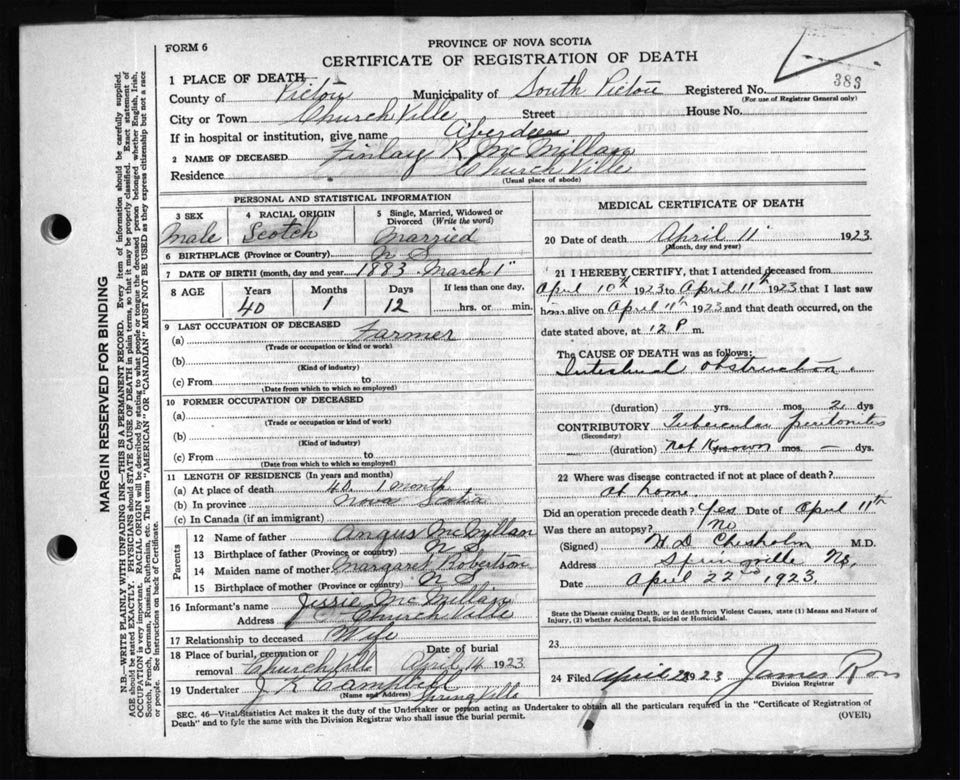 FORM 6
PROVINCE OF NOVA SCOTIA
CERTIFICATE OF REGISTRATION OF DEATH
383
1 PLACE OF DEATH
County of Pictou Municipality of South Pictou Registered No.
(For use of Registrar General only)
City or Town Churchville Street House No.
If in hospital or institution, give name Aberdeen
2 NAME OF DECEASED Finlay R. McMillan
Residence Churchville
(Usual place of abode)
PERSONAL AND STATISTICAL INFORMATION
3 SEX Male
4 RACIAL ORIGIN Scotch
5 Single, Married, Widowed or Divorced (Write the word) Married
6 BIRTHPLACE (Province or Country) N S
7 DATE OF BIRTH (month, day and year 1883 March 1"
8 AGE Years 40 Months 1 Days 12 If less than one day, hrs. or min.
9 LAST OCCUPATION OF DECEASED
(a) Farmer
(Trade or occupation or kind or work)
(b)
(Kind of industry)
(c) From to
(Date from which to which so employed)
10 FORMER OCCUPATION OF DECEASED
(a)
(Trade or occupation or kind of work)
(b)
(Kind of industry)
(c) From to
(Date from which to which so employed)
11 LENGTH OF RESIDENCE (In years and months)
(a) At place of death 40 1 month
(b) In province Nova Scotia
(c) In Canada (if an immigrant)
Parents
12 Name of father Angus McMillan
13 Birthplace of father (Province or country) N S
14 Maiden name of mother Margaret Robertson
15 Birthplace of mother (Province or country) N S
16 Informant's name Jessie McMillan
Address Churchville
17 Relationship to deceased Wife
18 Place of burial, cremation or removal Churchville Date of burial April 14 1923
19 Undertaker J K Campbell Springville
(Name and Address)
MEDICAL CERTIFICATE OF DEATH
20 Date of death April 11 1923
(Month, day and year)
21 I HEREBY CERTIFY, that I attended deceased from
April 10th 1923 to April 11th 1923 that I last saw
him alive on April 11th 1923 and that death occurred, on the
date stated above, at 12 P m.
The CAUSE OF DEATH was as follows:
Intestinal obstruction
(duration) yrs. mos. 2 dys
CONTRIBUTORY Tubercular peritonitis
(Secondary)
(duration) not Known mos. — dys.
22 Where was disease contracted if not at place of death?
at home.
Did an operation precede death? Yes Date of April 11th
Was there an autopsy? No
(Signed) H D Chisholm M.D.
Address Springville NS.
Date April 22nd 1923.
State the Disease causing Death, or in death from Violent Causes, state (1) Means and Nature of
Injury, (2) whether Accidental, Suicidal or Homicidal.
23
24 Filed April 1923 James Ross
Division Registrar
SEC. 46—Vital Statistics Act makes it the duty of the Undertaker or person acting as Undertaker to obtain all the particulars required in the "Certificate of Registration of
Death" and to fyle the same with the Division Registrar who shall issue the burial permit.
(OVER)
MARGIN RESERVED FOR BINDING
N.B.—WRITE PLAINLY WITH UNFADING INK—THIS IS A PERMANENT RECORD. Every item of information should be carefully supplied.
AGE should be stated EXACTLY. PHYSICIANS should STATE CAUSE OF DEATH in plain terms, so that it may be properly classified. Exact statement of
OCCUPATION is very important. RACIAL ORIGIN will be described by stating to what people or tongue the deceased person belonged whether English, Irish,
Scotch, French, German, Russian, Ruthenian, etc. The terms "AMERICAN" OR "CANADIAN" MUST NOT BE USED as they express citizenship but not a race
or people. See instructions on back of Certificate.